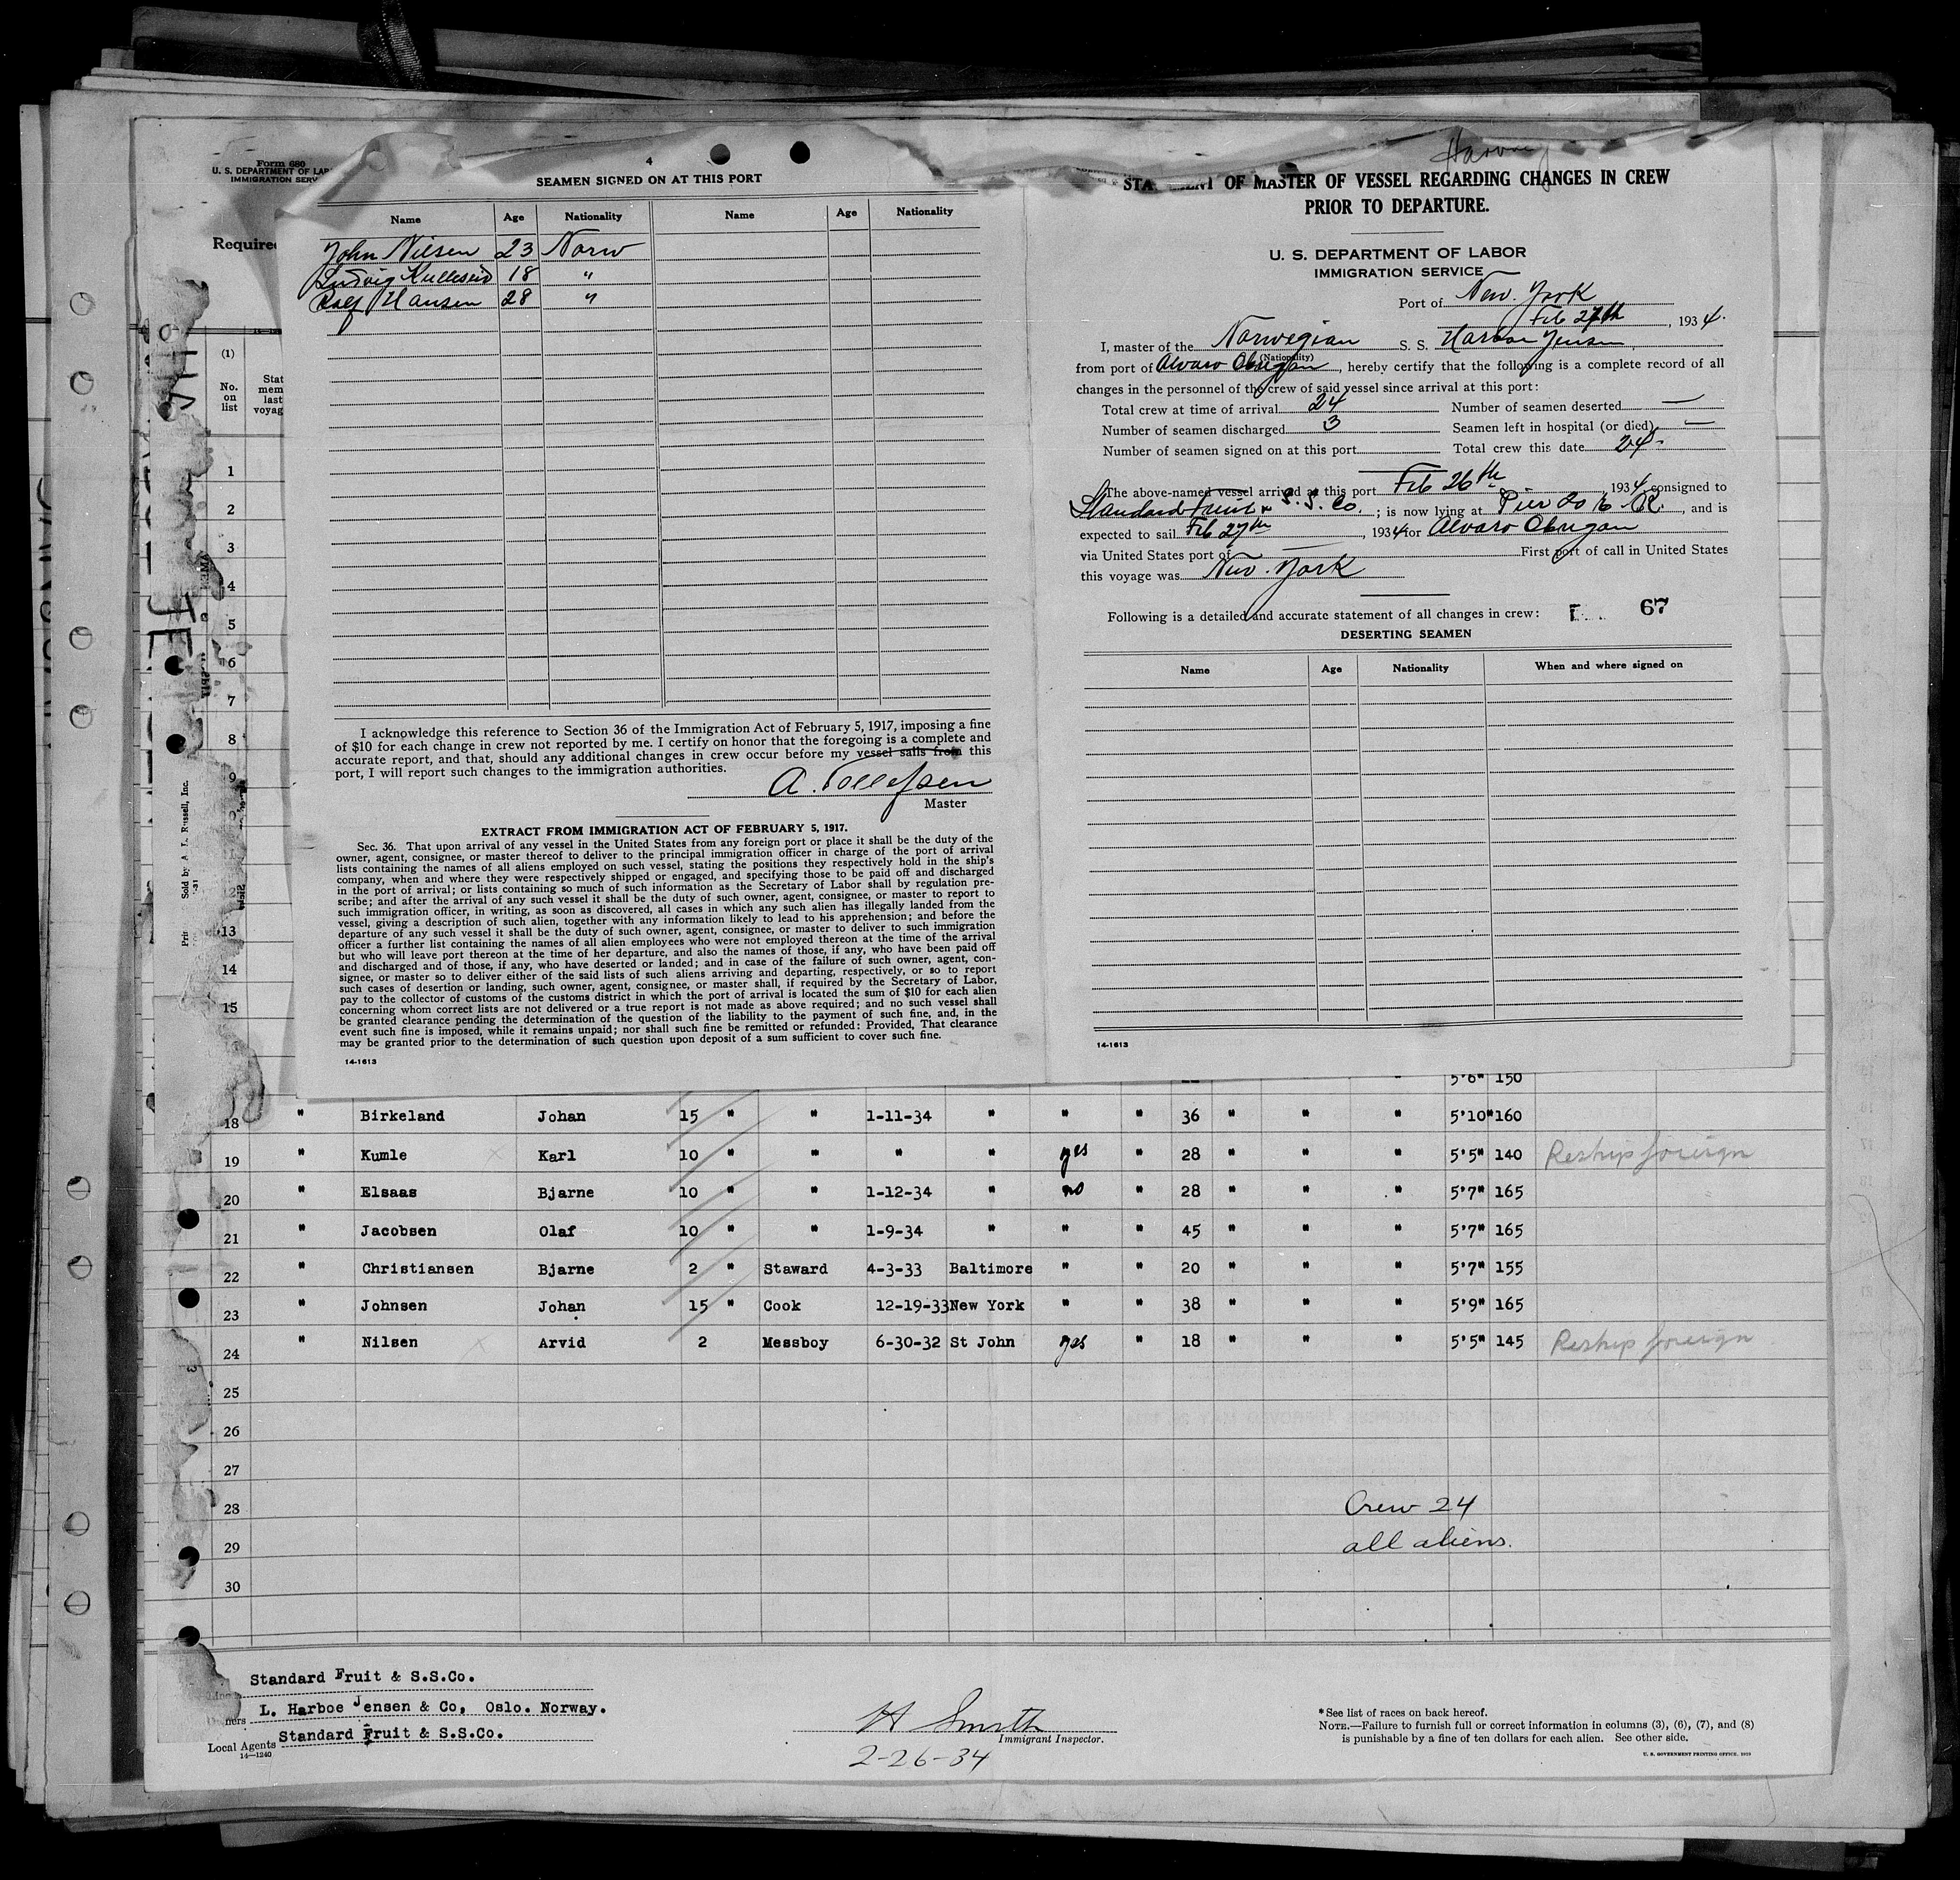 Form 680
U. S. DEPARTMENT OF LAB
IMMIGRATION SERV
Required
4
SEAMEN SIGNED ON AT THIS PORT
Name Age Nationality Name Age Nationality
John Nilsen 23 Norw
Ludvig 18 "
Rolf Hansen 28 "
I acknowledge this reference to Section 36 of the Immigration Act of February 5, 1917, imposing a fine
of $10 for each change in crew not reported by me. I certify on honor that the foregoing is a complete and
accurate report, and that, should any additional changes in crew occur before my vessel sails from this
port, I will report such changes to the immigration authorities.
A. Tollefsen
Master
EXTRACT FROM IMMIGRATION ACT OF FEBRUARY 5, 1917.
Sec. 36. That upon arrival of any vessel in the United States from any foreign port or place it shall be the duty of the
owner, agent, consignee, or master thereof to deliver to the principal immigration officer in charge of the port of arrival
lists containing the names of all aliens employed on such vessel, stating the positions they respectively hold in the ship's
company, when and where they were respectively shipped or engaged, and specifying those to be paid off and discharged
in the port of arrival; or lists containing so much of such information as the Secretary of Labor shall by regulation pre-
scribe; and after the arrival of any such vessel it shall be the duty of such owner, agent, consignee, or master to report to
such immigration officer, in writing, as soon as discovered, all cases in which any such alien has illegally landed from the
vessel, giving a description of such alien, together with any information likely to lead to his apprehension; and before the
departure of any such vessel it shall be the duty of such owner, agent, consignee, or master to deliver to such immigration
officer a further list containing the names of all alien employees who were not employed thereon at the time of the arrival
but who will leave port thereon at the time of her departure, and also the names of those, if any, who have been paid off
and discharged and of those, if any, who have deserted or landed; and in case of the failure of such owner, agent, con-
signee, or master so to deliver either of the said lists of such aliens arriving and departing, respectively, or so to report
such cases of desertion or landing, such owner, agent, consignee, or master shall, if required by the Secretary of Labor,
pay to the collector of customs of the customs district in which the port of arrival is located the sum of $10 for each alien
concerning whom correct lists are not delivered or a true report is not made as above required; and no such vessel shall
be granted clearance pending the determination of the question of the liability to the payment of such fine, and, in the
event such fine is imposed, while it remains unpaid; nor shall such fine be remitted or refunded: Provided, That clearance
may be granted prior to the determination of such question upon deposit of a sum sufficient to cover such fine.
14-1613
OF MASTER OF VESSEL REGARDING CHANGES IN CREW
PRIOR TO DEPARTURE.
U. S. DEPARTMENT OF LABOR
IMMIGRATION SERVICE
Port of New York
Feb 27th, 1934.
I, master of the Norwegian S. S. Harboe Jensen,
(Nationality)
from port of Alvaro Obregon, hereby certify that the following is a complete record of all
changes in the personnel of the crew of said vessel since arrival at this port:
Total crew at time of arrival 24 Number of seamen deserted —
Number of seamen discharged 3 Seamen left in hospital (or died) —
Number of seamen signed on at this port Total crew this date 24.
The above-named vessel arrived at this port Feb 26th, 1934, consigned to
Standard Fruit & S. S. Co.; is now lying at Pier, and is
expected to sail Feb 27th, 1934 for Alvaro Obregon
via United States port of — First port of call in United States
this voyage was New York
Following is a detailed and accurate statement of all changes in crew: 67
DESERTING SEAMEN
Name Age Nationality When and where signed on
14-1613
(1)
No.
on
list
1
2
3
4
5
6
7
8
9
12
13
14
15
5'6" 150
18 " Birkeland Johan 15 " " 1-11-34 " " " 36 " " " 5'10" 160
19 " Kumle Karl 10 " " " " yes " 28 " " " 5'5" 140 Reship foreign
20 " Elsaas Bjarne 10 " " 1-12-34 " no " 28 " " " 5'7" 165
21 " Jacobsen Olaf 10 " " 1-9-34 " " " 45 " " " 5'7" 165
22 " Christiansen Bjarne 2 " Staward 4-3-33 Baltimore " " 20 " " " 5'7" 155
23 " Johnsen Johan 15 " Cook 12-19-33 New York " " 38 " " " 5'9" 165
24 " Nilsen Arvid 2 Messboy 6-30-32 St John yes " 18 " " " 5'5" 145 Reship foreign
25
26
27
28
29
30
Crew 24
all aliens.
Standard Fruit & S.S.Co.
L. Harboe Jensen & Co, Oslo. Norway.
Local Agents Standard Fruit & S.S.Co.
14—1240
H Smith
Immigrant Inspector.
2-26-34
*See list of races on back hereof.
NOTE.—Failure to furnish full or correct information in columns (3), (6), (7), and (8)
is punishable by a fine of ten dollars for each alien. See other side.
U. S. GOVERNMENT PRINTING OFFICE